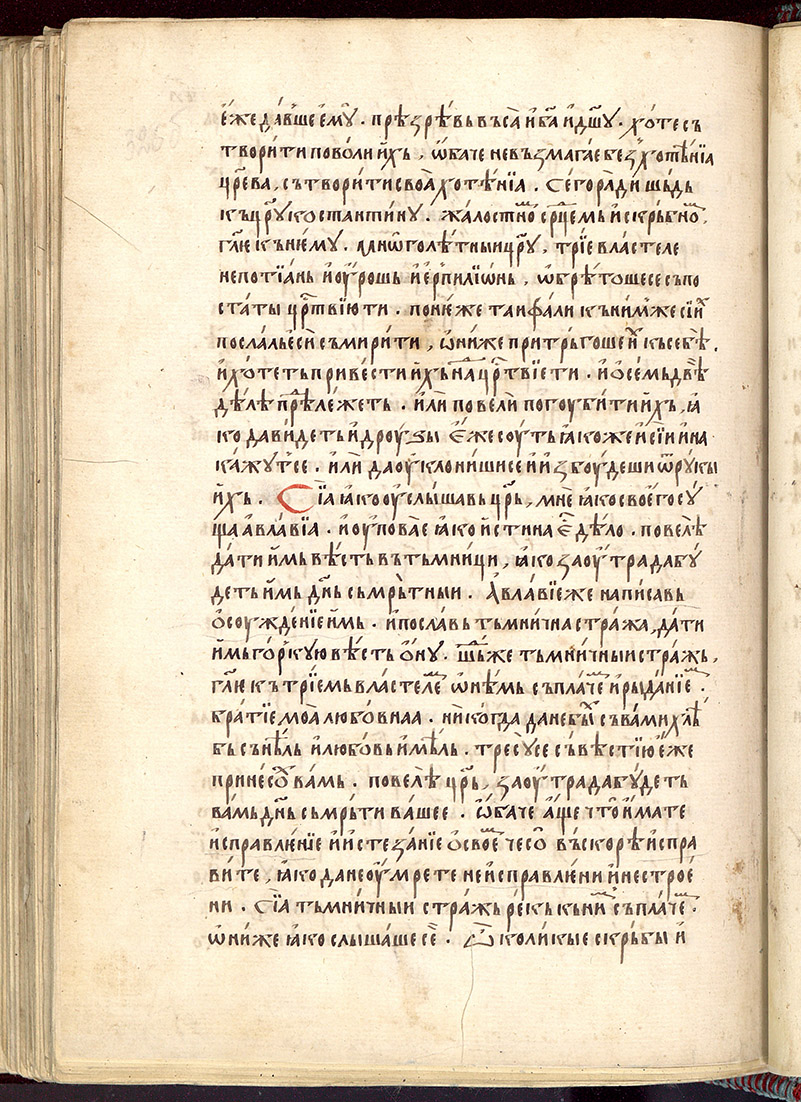 е҆жеда́вшее҆мꙋ̀ . прѣзрѣ́вь въса̀ и҆ба и҆дш҃ꙋ . хо́те съ
твори́ти поволи и҆хь , ѡ҆баче невъзмагае без̾хотѣ́нїа
цр҃ева , сътвори́ти своа̀ хотѣ́нїа . Сего ра́ди шь́дь
къцр҃ꙋ костантинꙋ . жа́лостно ср҃цемь и҆скрьбно
гл҃ѥ кънѥ́мꙋ . мнѡголѣ́тныи цр҃ꙋ , трїе вла́стеле
непотїань и҆оу҆рошь и҆е҆рпилїѡнь , ѡ҆брѣ́тошесе съпо
ста́ты црⷭ҇твїю ти . поне́же таифали кънимже сїи́хь
посла́ль е҆сѝ съмирити , ѡ҆ни́же притръ́гоше и҆хь късебѣ .
и҆хо́теть привести и҆хь на црⷭ҇твїе ти . и҆о҆се́мь двѣ̀
дѣлѣ̀ прѣⷣле́жеть . и҆лѝ повелѝ погоуби́ти и҆хь , ꙗ
ко да ви́деть и҆дроуѕы е҆же соуть ꙗкоже и҆сїи и҆на
ка́жꙋтсе . и҆лѝ даоу҆клони́шисе и҆ и҆збоу́деши ѿ рꙋкы
и҆хь . Сїа ꙗко оу҆слы́шавь цр҃ь , мнѐ ꙗко своѥ́го сꙋ́
ща а҆вла́вїа . и҆оу҆пова́е ꙗко и҆стина е҆ⷭ҇ дѣ́ло . повелѣ̀
да́ти и҆мь вѣ́сть вътьмни́ци , ꙗко заоу҆́тра да бꙋ́
деть и҆мь дн҃ь сьмрь́тныи . А҆вла́вїеже написавь
о҆соужде́нїе и҆мь . и҆посла́вь тьмни́чна стра́жа , да́ти
и҆мь го́р̾кꙋю вѣ́сть о҆́нꙋ . Шь́⁣д̾же тьмни́чныи стра́жь ,
гл҃ѥ къ трїемь вла́стелеⷨ ѡ҆нѣмь съпла́чеⷨ и҆рыда́нїеⷨ .
бра́тїе моа̀ любо́внаа . ни́когда да небыхь съва́ми хлѣ́
бь съне́ль и҆любо́вь и҆мѣ́ль . тресꙋсе съвѣ́стїю е҆́же
принесо́хь ва́мь . повелѣ̀ цр҃ь , заоу҆́тра да бꙋ́деть
ва́мь дн҃ь сьмрь́ти ва́шее . Ѡ҆ба́че а҆́ще что̀ и҆мате
и҆справле́нїе и҆ и҆стеза́нїе о҆своеⷨ чесоⷨ въскорѣ и҆спра
ви́те , ꙗко да неоу҆́мрете неи҆справлѥ́ни и҆нестроѥ́
ни . Сїа тьмни́чныи стра́жь рѐкь къниⷨ съпла́чеⷨ .
ѡ҆ни́же ꙗко слы́шаше сѐ . Ѿ коли́кые скръ́бы и҆